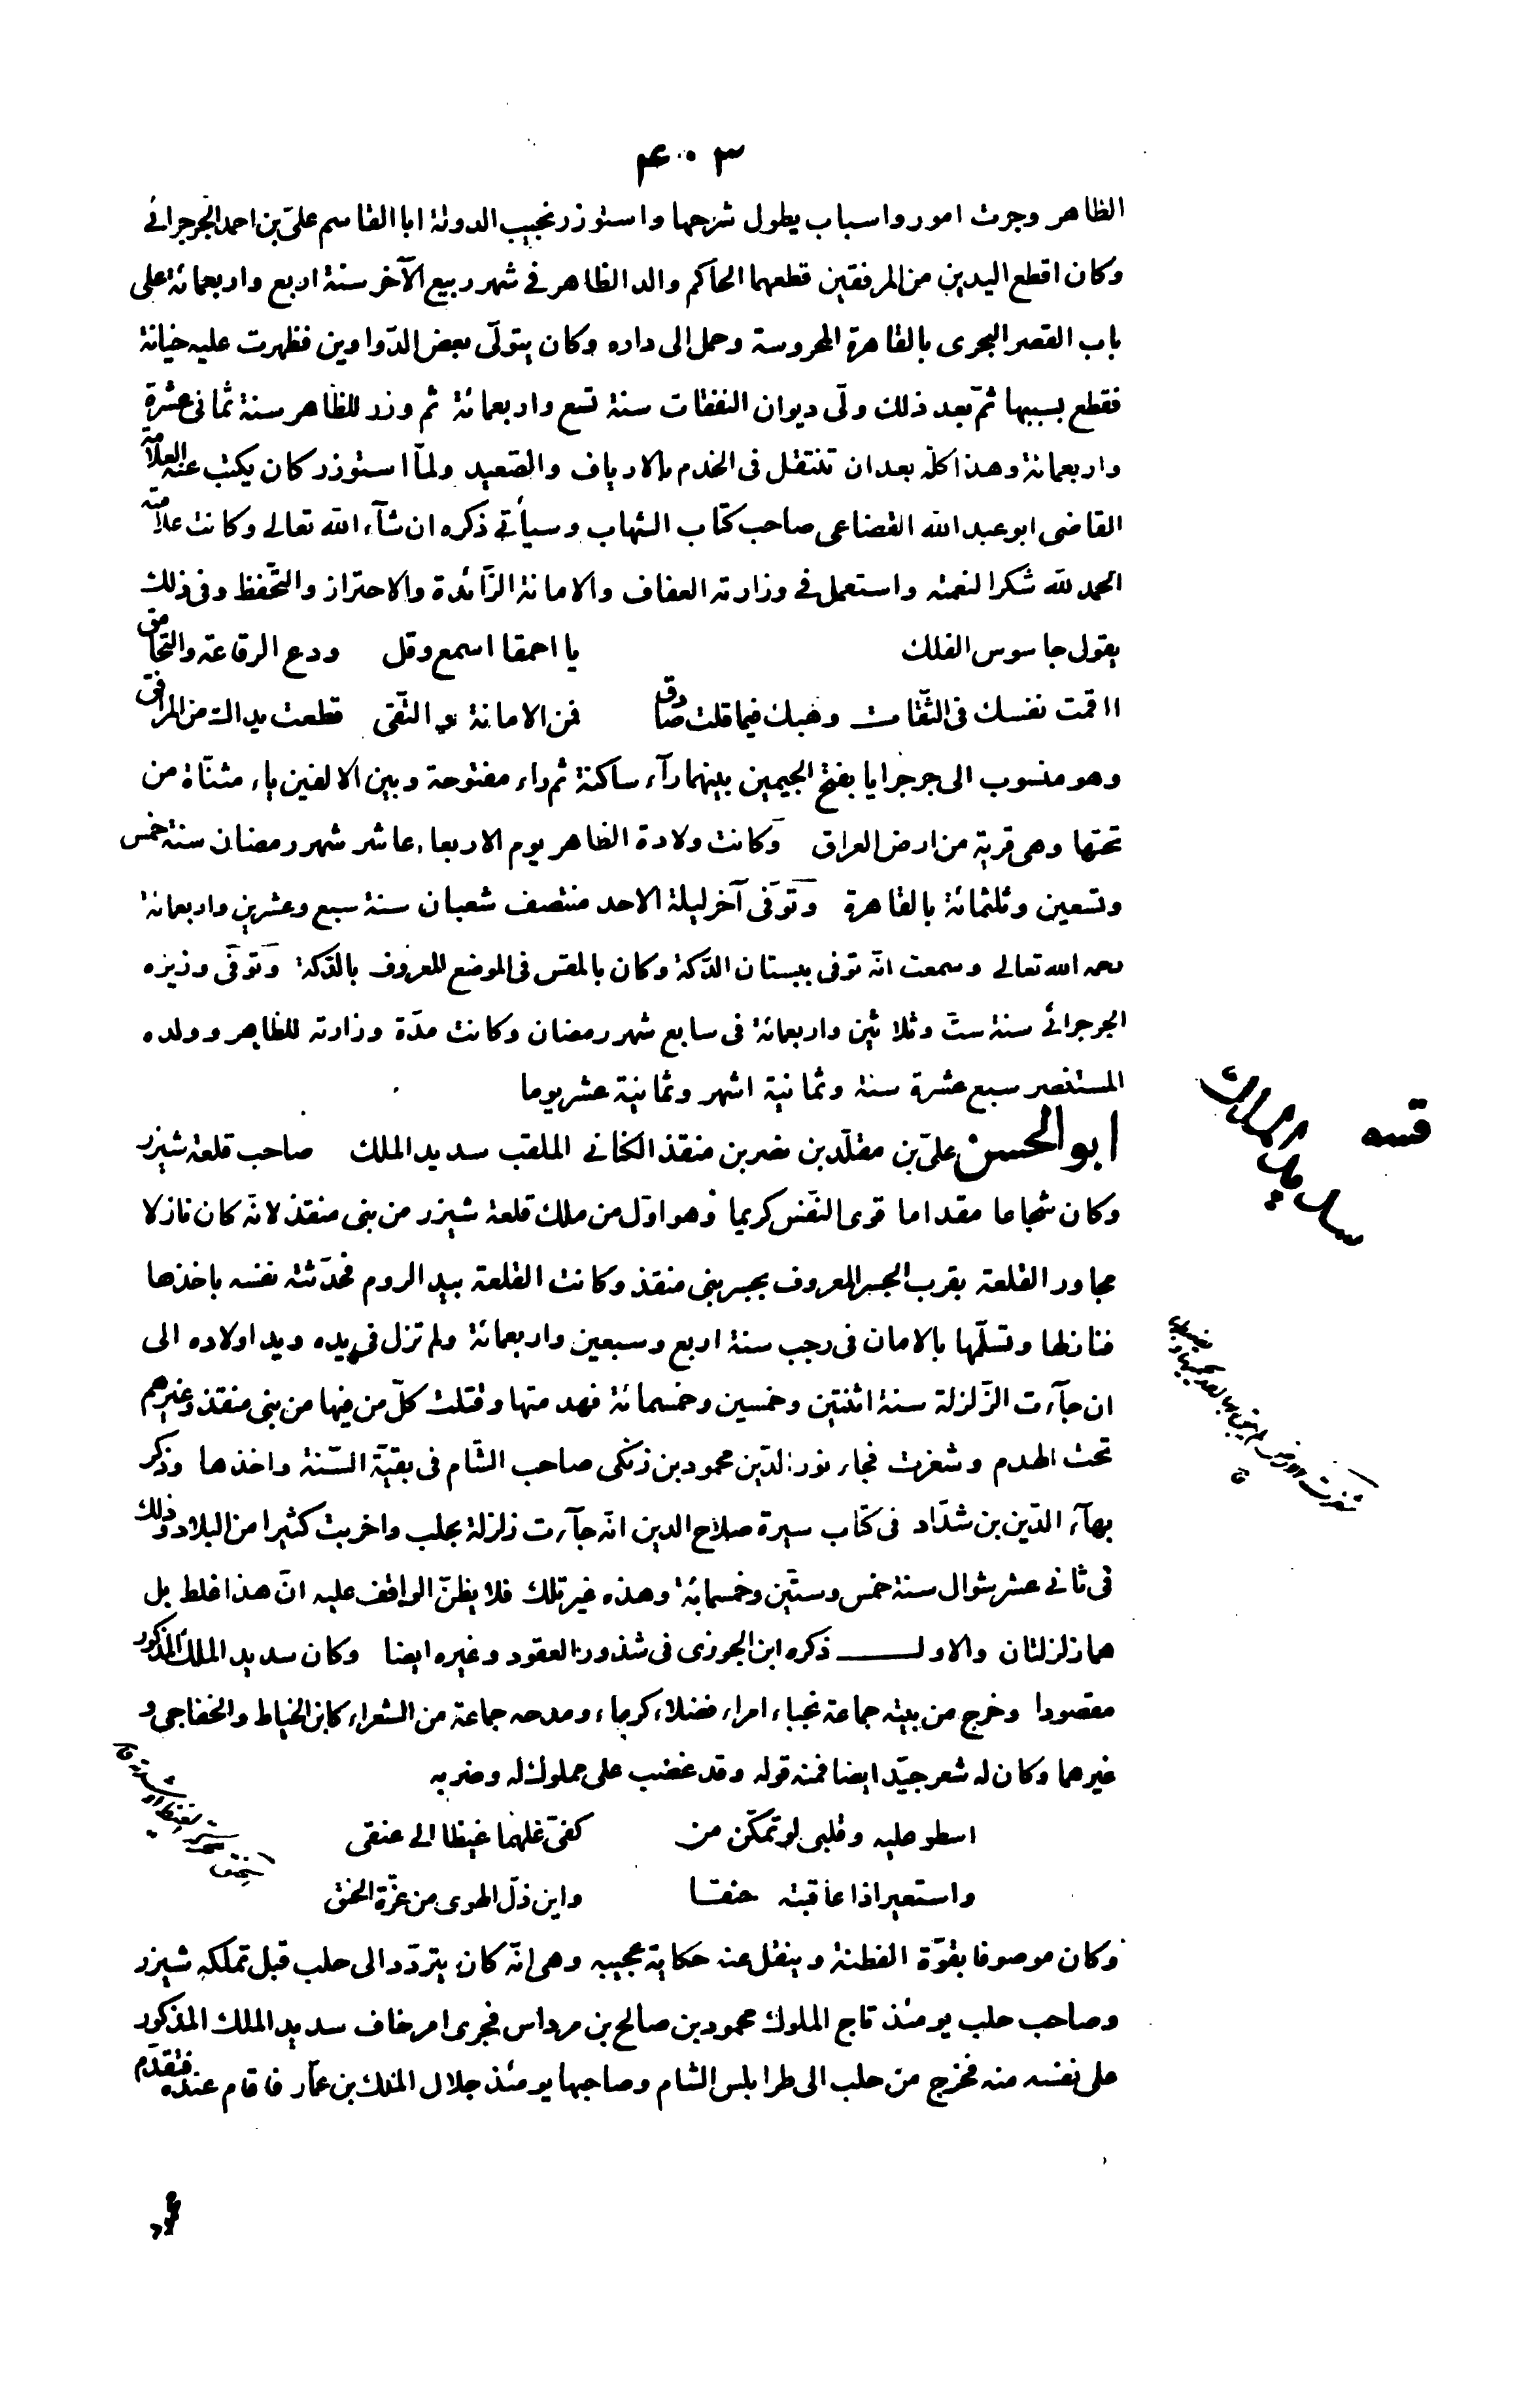 ٤٠٣
الظاهر وجرت امور واسباب يطول شرحها واستوزر نجيب الدولة ابا القاسم علىّ بن احمد الجرجرائى
وكان اقطع اليدين من المرفقين قطعهما الحاكم والد الظاهر فى شهر ربيع الآخر سنة اربع واربعمائة على
باب القصر البحرى بالقاهرة المحروسة وحمل الى داره وكان يتولّى بعض الدّواوين فظهرت عليه خيانة
فقطع بسببها ثمّ بعد ذلك ولّى ديوان النفقات سنة تسع واربعمائة ثم وزر للظاهر سنة ثمانى عشرة
واربعمائة وهذا كلّه بعد ان تنتقل فى الخدم بالارياف والصّعيد ولمّا استوزر كان يكتب عنه العلامة
القاضى ابو عبد الله القضاعى صاحب كتاب الشهاب وسيأتى ذكره ان شآء الله تعالى وكانت علامته
الحمد لله شكرا لنعمته واستعمل فى وزارته العفاف والامانة الزّائدة والاحتراز والتحّفظ وفى ذلك
يقول جاسوس الفلك يا احمقا اسمع وقل ودع الرقاعة والتحامق
ااقمت نفسك فى الثّقات وهبك فيما قلت صادق فمن الامانة والتّقى قطعت يداك من المرافق
وهو منسوب الى جرجرايا بفتح الجيمين بينهما رآء ساكنة ثم راء مفتوحة وبين الالفين ياء مثنّاة من
تحتها وهى قرية من ارض العراق وكانت ولادة الظاهر يوم الاربعاء عاشر شهر رمضان سنة خمس
وتسعين وثلثمائة بالقاهرة وتوفّى آخر ليلة الاحد منتصف شعبان سنة سبع وعشرين واربعمائة
رحمه الله تعالى وسمعت انّه توفى ببستان الدّكة وكان بالمقس فى الموضع المعروف بالدّكة وتوفّى وزيره
الجرجرائى سنة ستّ وثلاثين واربعمائة فى سابع شهر رمضان وكانت مدّة وزارته للظاهر وولده
المستنصر سبع عشرة سنة وثمانية اشهر وثمانية عشر يوما
سديد الملك
ابو الحسن علىّ بن مقلّد بن نصر بن منقذ الكنانى الملقب سديد الملك صاحب قلعة شيزر
وكان شجاعا مقداما قوى النفس كريما وهو اوّل من ملك قلعة شيزر من بنى منقذ لانّه كان نازلا
مجاور القلعة بقرب الجسر المعروف بجسر بنى منقذ وكانت القلعة بيد الروم فحدّثته نفسه باخذها
فنازلها وتسلّمها بالامان فى رجب سنة اربع وسبعين واربعمائة ولم تزل فى يده ويد اولاده الى
ان جآءت الزّلزلة سنة اثنتين وخمسين وخمسمائة فهدمتها وقتلت كلّ من فيها من بنى منقذ وغيرهم
تحت الهدم وشغرت فجاء نور الدّين محمود بن زنكى صاحب الشّام فى بقيّة السّنة واخذها وذكر
بهآء الدّين بن شدّاد فى كتاب سيرة صلاح الدين انّه جآءت زلزلة بحلب واخربت كثيرا من البلاد وذلك
فى ثانى عشر شوال سنة خمس وستّين وخمسمائة وهذه غير تلك فلا يظنّ الواقف عليه انّ هذا غلط بل
هما زلزلتان والاول ذكره ابن الجوزى فى شذور العقود وغيره ايضا وكان سديد الملك المذكور
مقصودا وخرج من بيته جماعة نجباء امراء فضلاء كرماء ومدحه جماعة من الشعراء كابن الخياط والخفاجى و
غيرهما وكان له شعر جيّد ايضا فمنه قوله وقد غضب على مملوك له وضربه
اسطو عليه وقلبى لو تمكّن من كفىّ غلهما غيظا الى عنقى
واستعير اذا عاقبته حنقا واين ذلّ الهوى من عزّة الحنق
وكان موصوفا بقوّة الفطنة وينقل عنه حكاية عجيبه وهى انّه كان يتردّد الى حلب قبل تملكه شيزر
وصاحب حلب يومئذ تاج الملوك محمود بن صالح بن مرداس فجرى امر خاف سديد الملك المذكور
على نفسه منه فخرج من حلب الى طرابلس الشام وصاحبها يومئذ جلال الملك بن عمّار فاقام عنده فتقدّم